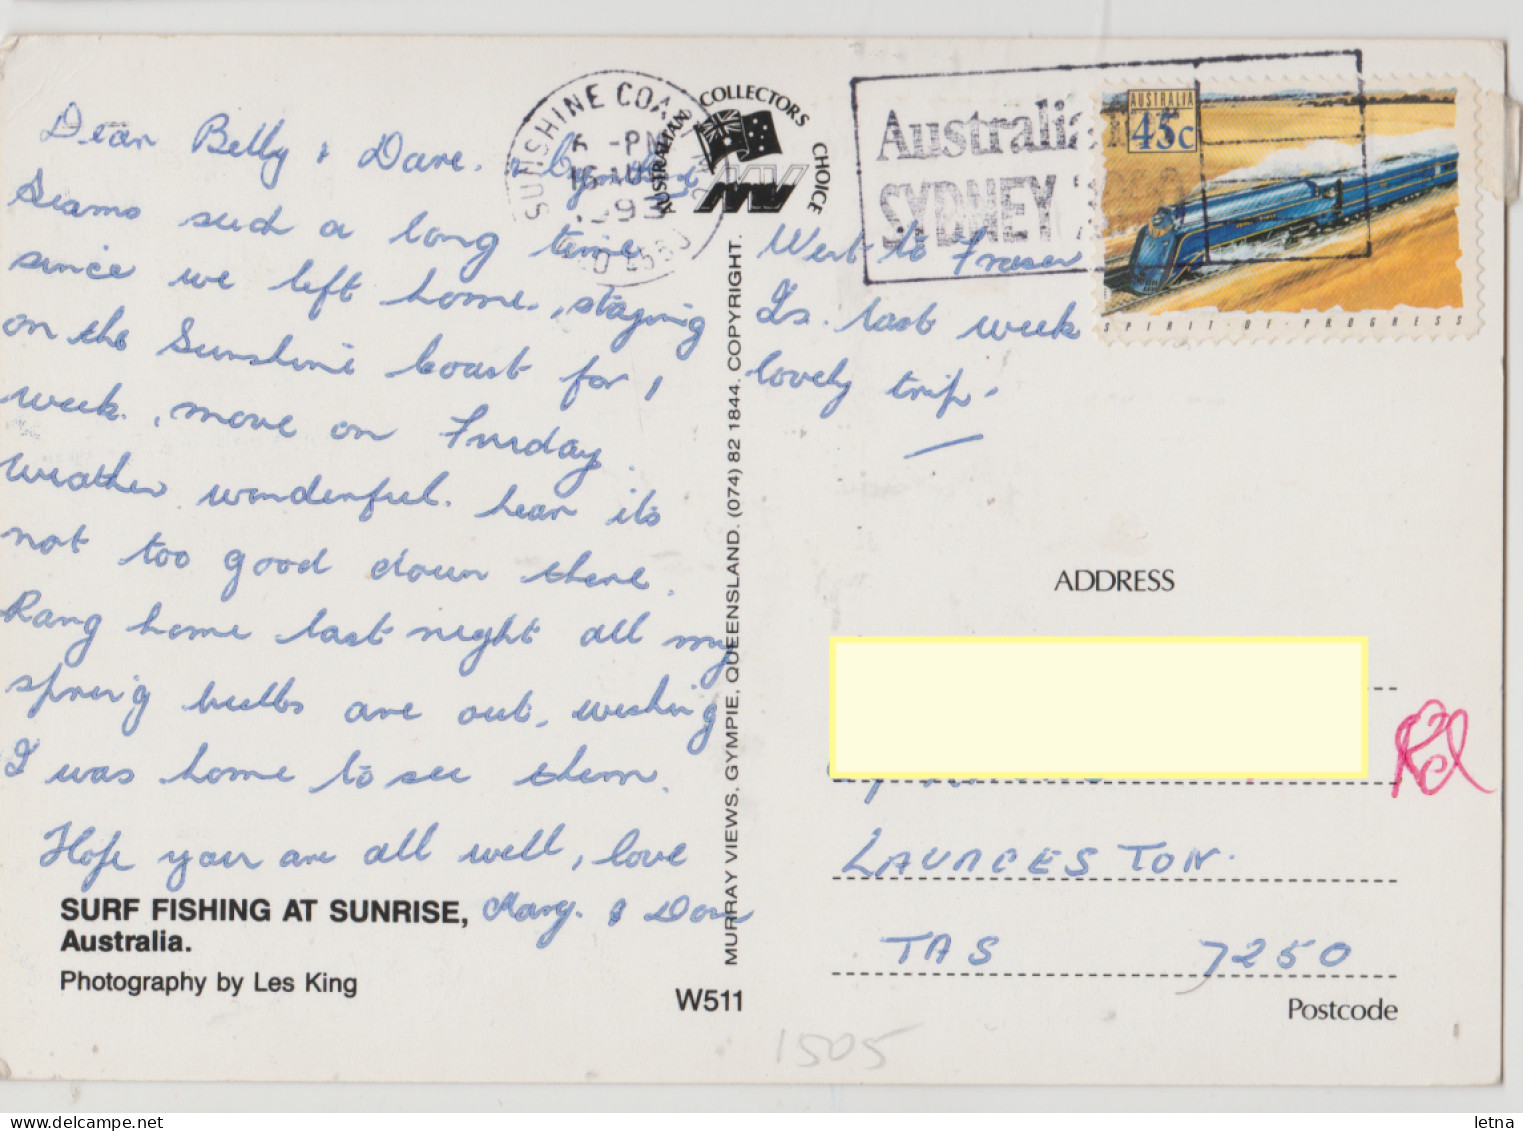 Dear Betty & Dave.
Seams such a long time
since we left home, staying
on the Sunshine Coast for 1
week, move on Furday.
weather wonderful. hear its
not too good down there.
Rang home last night all my
spring bulbs are out, wishing
I was home to see them.
Hope your are all well, love
Marg. & Don
SURF FISHING AT SUNRISE,
Australia.
Photography by Les King
W511
MURRAY VIEWS, GYMPIE, QUEENSLAND. (074) 82 1844. COPYRIGHT.
AUSTRALIAN COLLECTORS CHOICE
MV
SUNSHINE COA
6 -PM
16 AU
Australia
SYDNEY
AUSTRALIA
45c
SPIRIT·OF·PROGRESS
Went to Fraser
Is. last week
lovely trip.
ADDRESS
LAUNCESTON.
TAS 7250
Postcode
1505
letna